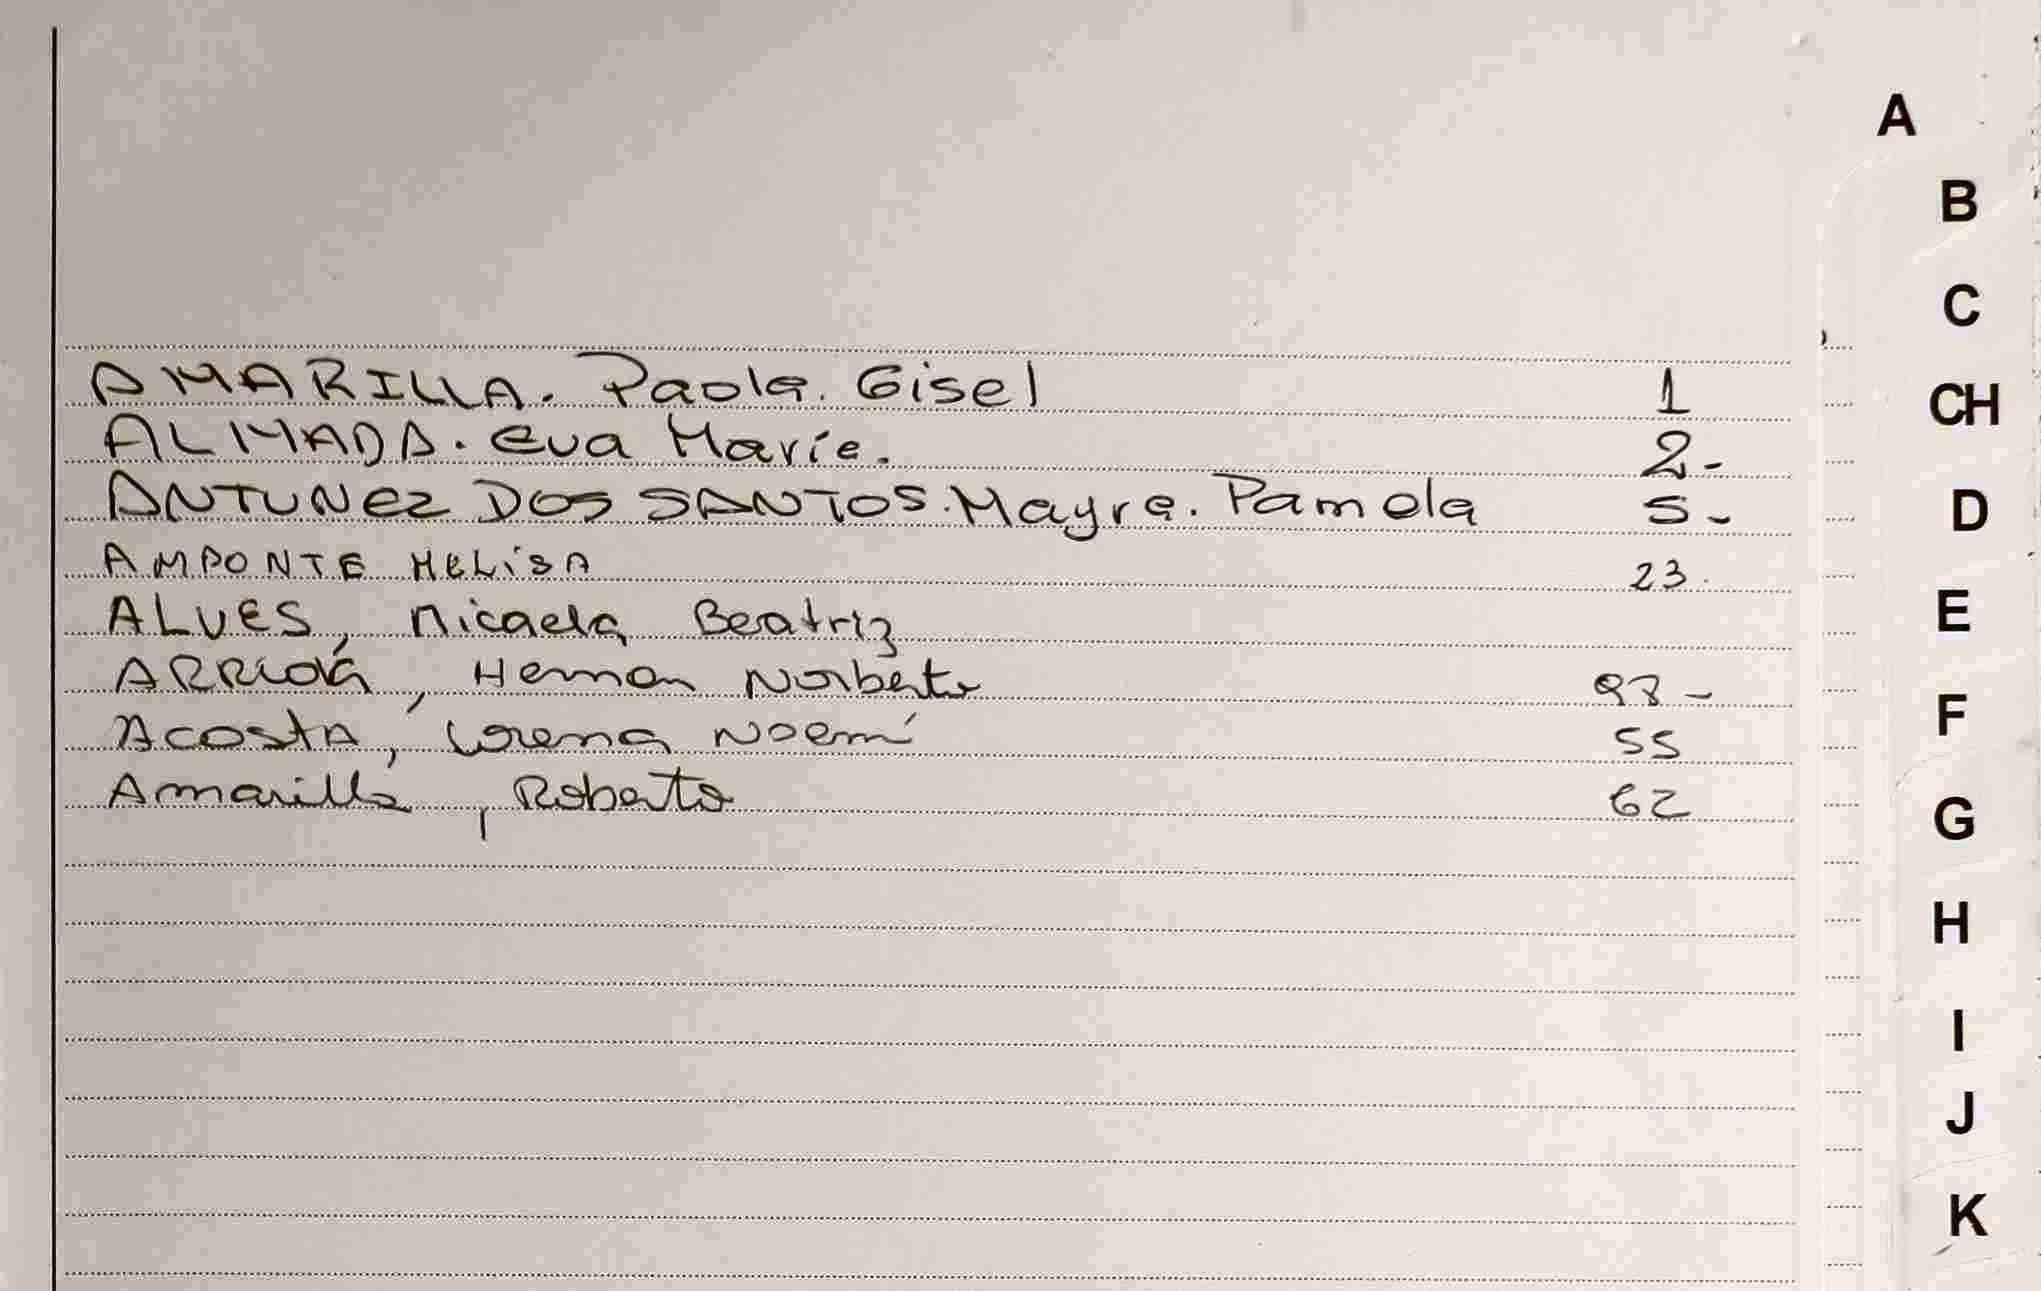 A
B
C
CH
D
E
F
G
H
I
J
K
AMARILLA. Paola. Gisel 1
ALMADA. Eva María. 2-
ANTUNEZ DOS SANTOS. Mayra. Pamela 5-
AMPONTE MELISA 23.
ALVES, Micaela Beatriz
Hernan Norberto
ACOSTA, Lorena Noemí 55
Amarilla, Roberto 62